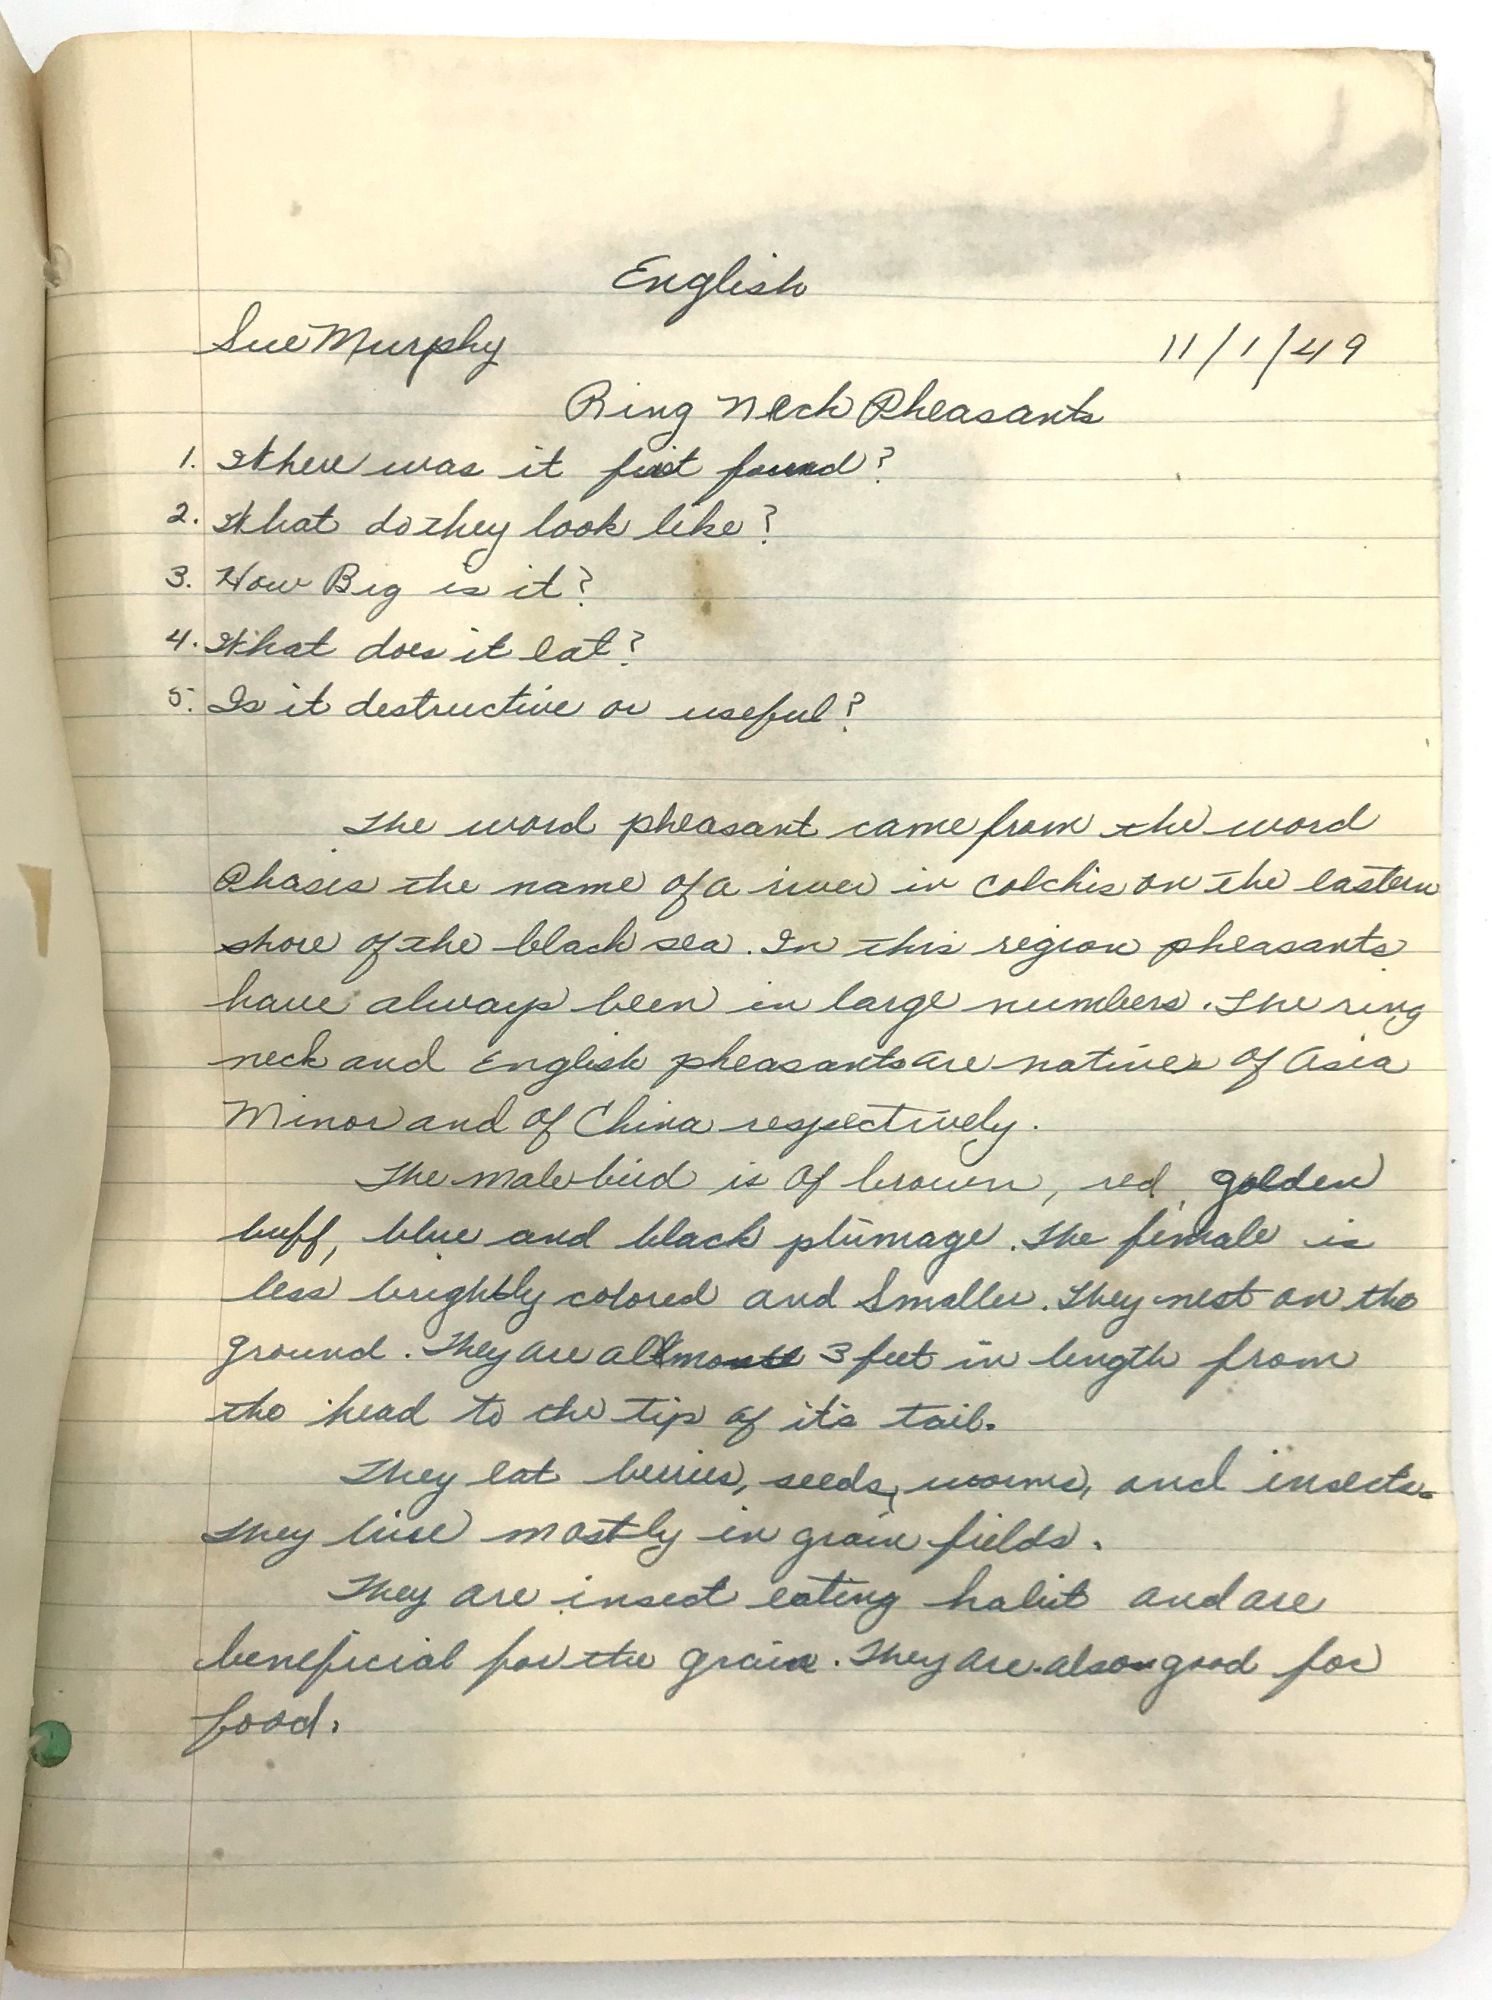 English
Sue Murphy 11/1/49
Ring Neck Pheasants
1. Where was it first found?
2. What do they look like?
3. How Big is it?
4. What does it eat?
5. Is it destructive or useful?
The word pheasant came from the word
Phasis the name of a river in Colchis on the eastern
shore of the black sea. In this region pheasants
have always been in large numbers. The ring
neck and English pheasants are natives of Asia
Minor and of China respectively.
The male bird is of brown, red, golden
buff, blue and black plumage. The female is
less brightly colored and Smaller. They nest on the
ground. They are allmost 3 feet in length from
the head to the tip of it's tail.
They eat berries, seeds, worms, and insects.
They live mostly in grain fields.
They are insect eating habit and are
beneficial for the grain. They are also good for
food.